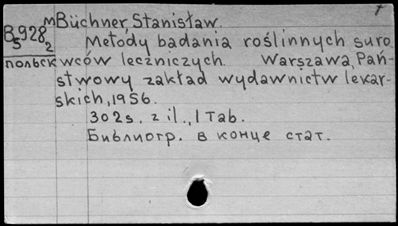 м Büchner, Stanisław.
Б5928₂ Metody badania roślinnych suro
польск wców leczniczych. Warszawa, Pań-
stwowy zakład wydawnictw lekar-
skich, 1956.
302s. z il., 1 Tab.
Библиогр. в конце стат.